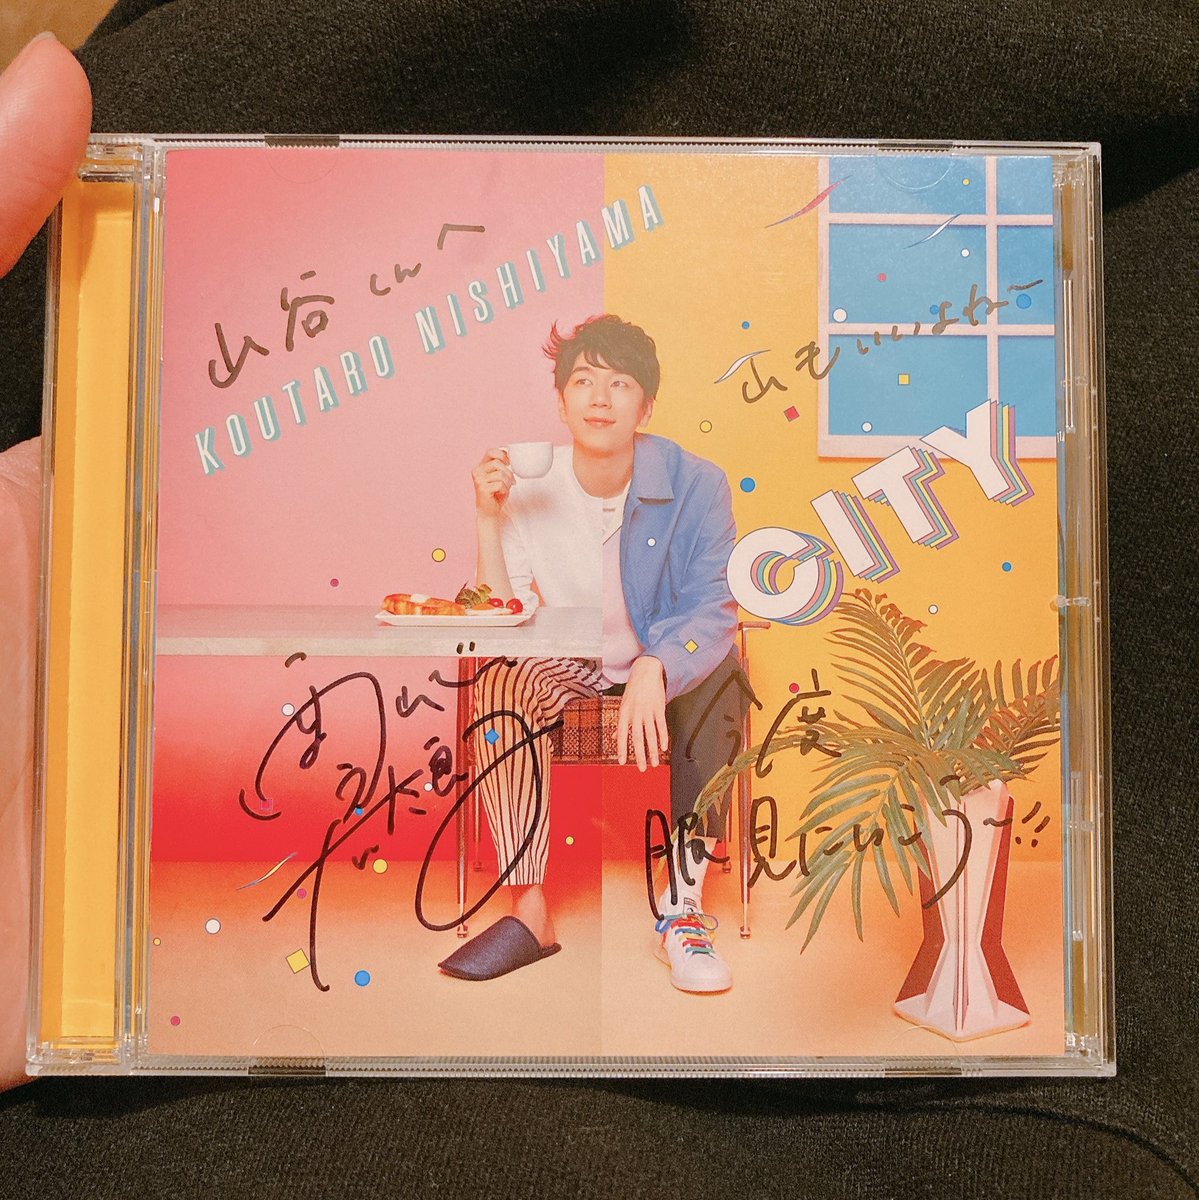 山谷くんへ
KOUTARO NISHIYAMA
山もいいよねー
CITY
今度
服見にいこうー!!